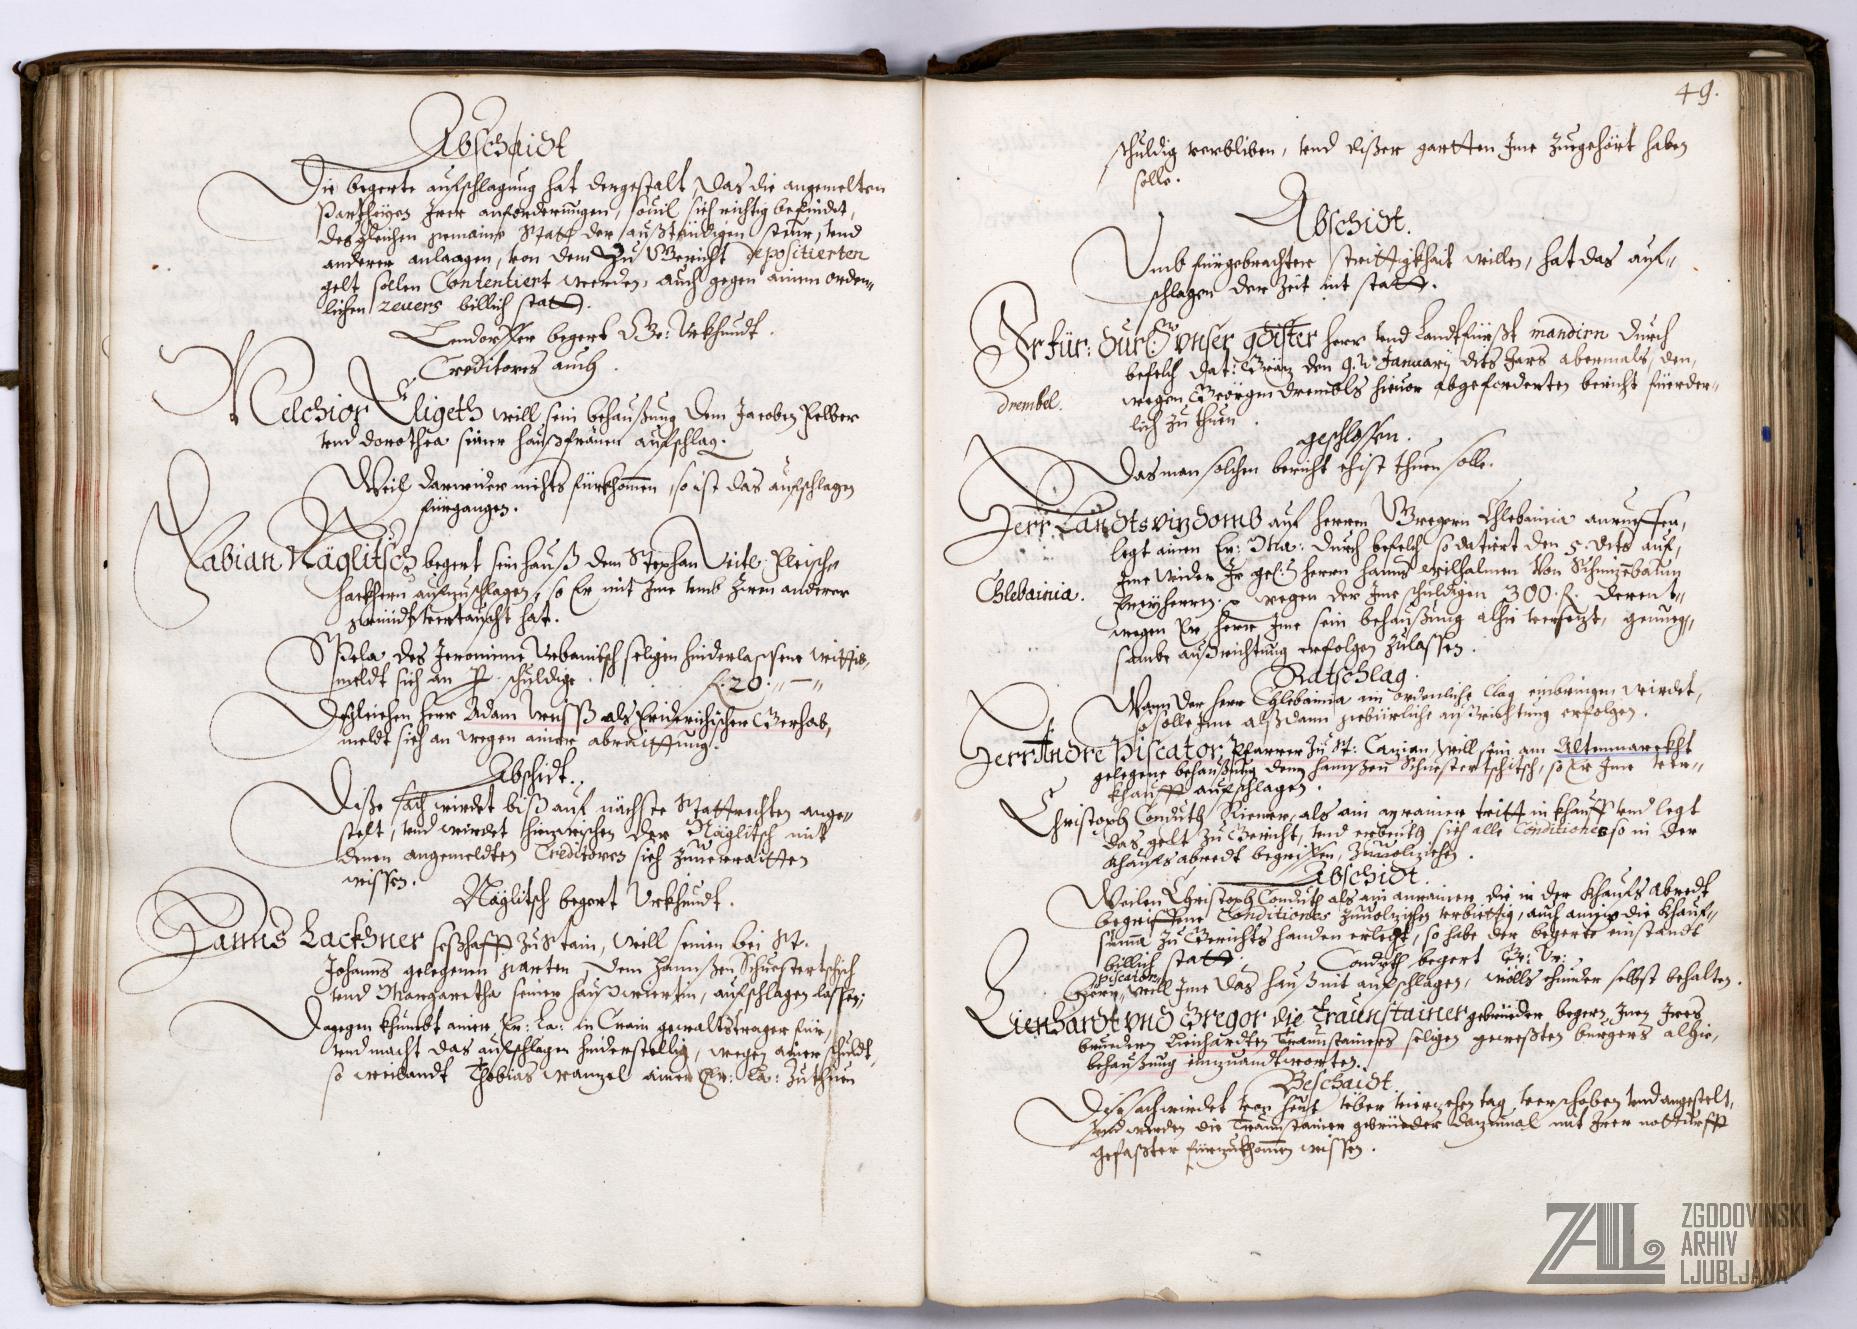 Abschaidt
Die begerte aufschlagung hat dergestalt, das die angemelten
Partheyen Irer anforderungen, souil sich richtig befindet,
desgleichen gemaine Statt der außstendigen steur, vnd
anderer anlaagen, von dem zu Gericht depositierten
gelt sollen Contentiert werden, auch gegen ainem orden„
lichen zeuers billich statt.
begert Ge: Vrkhundt.
Creditores auch.
Melchior Eligeth will sein behaußung dem Jacoben Felber
vnd dorothea seiner haußfrauen aufschlag.
Weil darwider nichts fürkhomen, so ist das aufschlagen
fürgangen.
Fabian Näglitsch begert sein hauß dem Stephan Veitl Fleisch„
hackhern aufzuschlagen, so Er mit Ime vmb zwen anderer
vertauscht hat.
Spela des Jeronimo Vrbanitsch seligen hinderlassene wittib„
meldt sich an P. schuldige. f. 20.„—„
Desgleichen herr Adam Weiß als Friderichischer Gerhab,
meldt sich an wegen ainer abraittung.
Abschidt.
Diße sach wirdet biß auf nächste Stattrechten ange„
stelt, vnd wirdet hinzwischen der Näglitsch mit
denen angemeldten Creditoren sich zuuerraitten
wissen.
Näglitsch begert Vrkhundt.
Hanns Lackhner seßhafft zu Stain, will seinen bei St.
Johanns gelegenen garten, dem Hannßen Schuestertschitsch
vnd Margaretha seiner haußwiertin, aufschlagen lassen;
Dagegen khumbt ainer Er: La: in Crain gewaltstrager für,
vnd macht das aufschlagen hinderstellig, wegen ainer schuldt,
so weilandt Thobias Wanzel ainer Er: La: zuthuen
49.
schuldig verbliben, vnd dißer gartten Ime zuegehört haben
solle.
Abschidt.
Vmb fürgebrachter strittigkhait willen, hat das auf„
schlagen der Zeit nit statt.
Ir für: Dur: vnser gdister herr vnd Landtsfürst mandirn durch
befelch dat: Gräz den 9. January dits Jars abermals, den,
wegen Geörgen drembls hieuor abgeforderten bericht fürder„
lich zu thuen.
drembel.
geschlossen.
Das man solchen bericht ehist thuen solle.
Herr Landtsvizdomb auf herrn Gregorn Chlebainia anrueffen,
legt ainen Er: Mag: durch befelch so datiert den 5. dits auf,
Ime wider Ir gel: herrn hanns wilhalmen Von Schnizenbaum
Freyherrn. wegen der Ime schuldigen 300. f. derent„
wegen Er, herr Ime sein behaußung alhie versezt, genueg„
sambe außrichtung erfolgen zulassen.
Chlebainia.
Ratschlag.
Wann der herr Chlebainia ain ordenliche Clag einbringen wirdet,
solle Ime alßdann gebürliche außrichtung erfolgen.
Herr Andre Piscator, Pfarrer zu St: Canian, will sein am Altenmarckht
gelegene behaußung dem hannßen Schuestertschitsch, so Er Ime ver„
khaufft aufschlagen.
Christoph Conduth Riemer, als ain anrainer tritt in khauff vnd legt
das gelt zu Gericht, vnd erbeuth sich alle Conditiones so in der
khaufsabredt begriffen, zuuolziehen.
Abschidt.
Weilen Christoph Conduth als ain anrainer, die in der khaufsabredt
begriffene Conditiones zuuolziehen verbiettig, auch die khauf„
suma zu Gerichtshanden erlegt, so habe der begerte einstandt
billich statt. Conduth begert Ge: Vr:
Herr Piscator, will Ime das hauß nit aufschlagen, wölls ehunder selbst behalten.
Lienhardt vnd Gregor die Traunstainer gebrüeder begern, Inen Ires
bruedern Lienhardten Traunstainers seligen geweßten burgers alhie,
behaußung einzuandtworten.
Beschaidt
Dise sach wirdet von heut über vierzehen tag verschoben vnd angestelt,
vnd werden die Traunstainer gebrüeder dazumal mit Irer notturfft
gefaßter fürzukhomen wissen.
ZAL
ZGODOVINSKI
ARHIV
LJUBLJANA